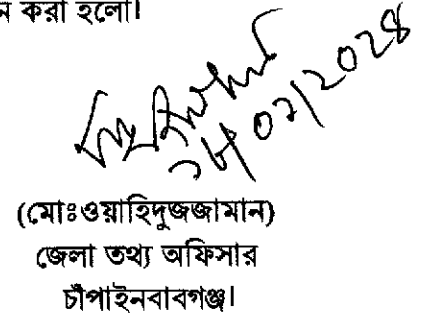 ন করা হলো।
(মোঃওয়াহিদুজজামান)
জেলা তথ্য অফিসার
চাঁপাইনবাবগঞ্জ।